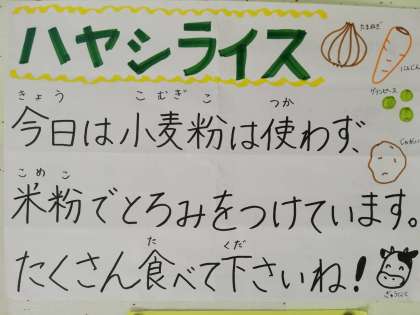 ハヤシライス
たまねぎ
にんじん
グリンピース
じゃがいも
きょう こむぎこ つか
今日は小麦粉は使わず、
こめこ
米粉でとろみをつけています。
た くだ
たくさん食べて下さいね!
ぎゅうにく